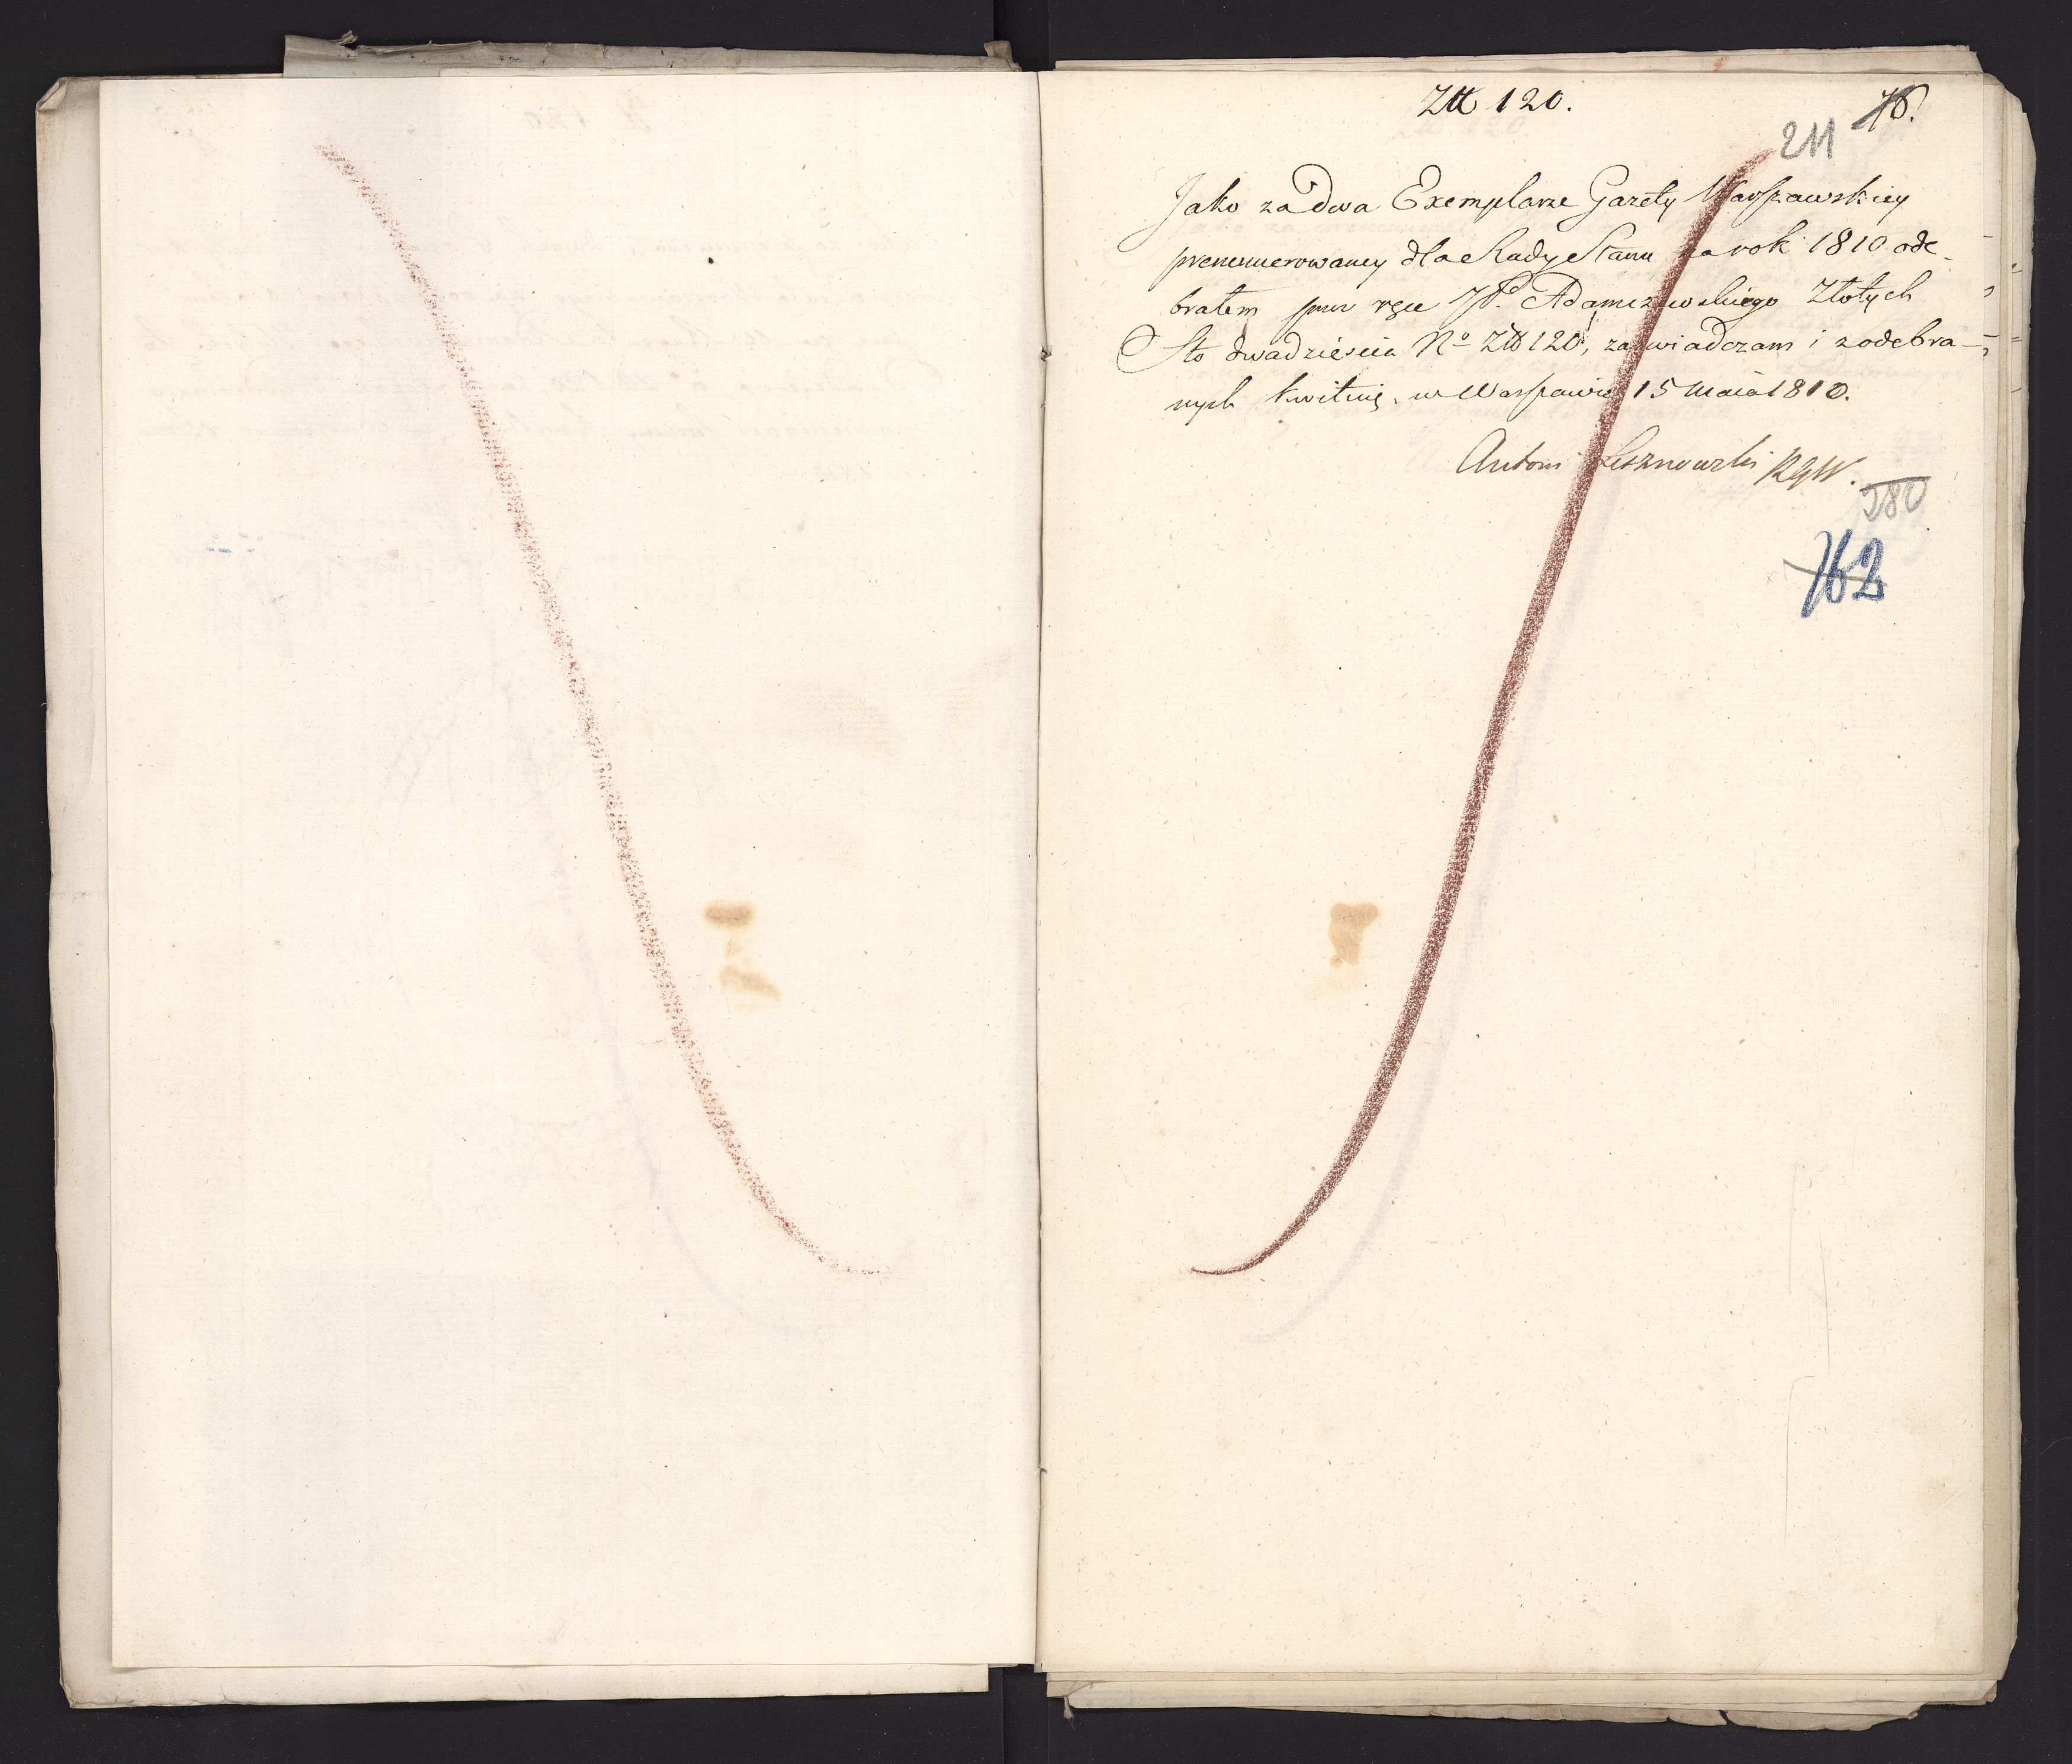 Złł 120.
76.
211
Jako za dwa Exemplarze Gazety Warszawskiey
prenumerowaney dla Rady Stanu za rok 1810 ode-
brałem przez ręce JP. Adamczewskiego Złotych
Sto dwadziescia No Złł 120, zaświadczam i z odebra-
nych kwituię. w Warszawie 15 Maia 1810.
Antoni Lesznowski RGW.
280
762